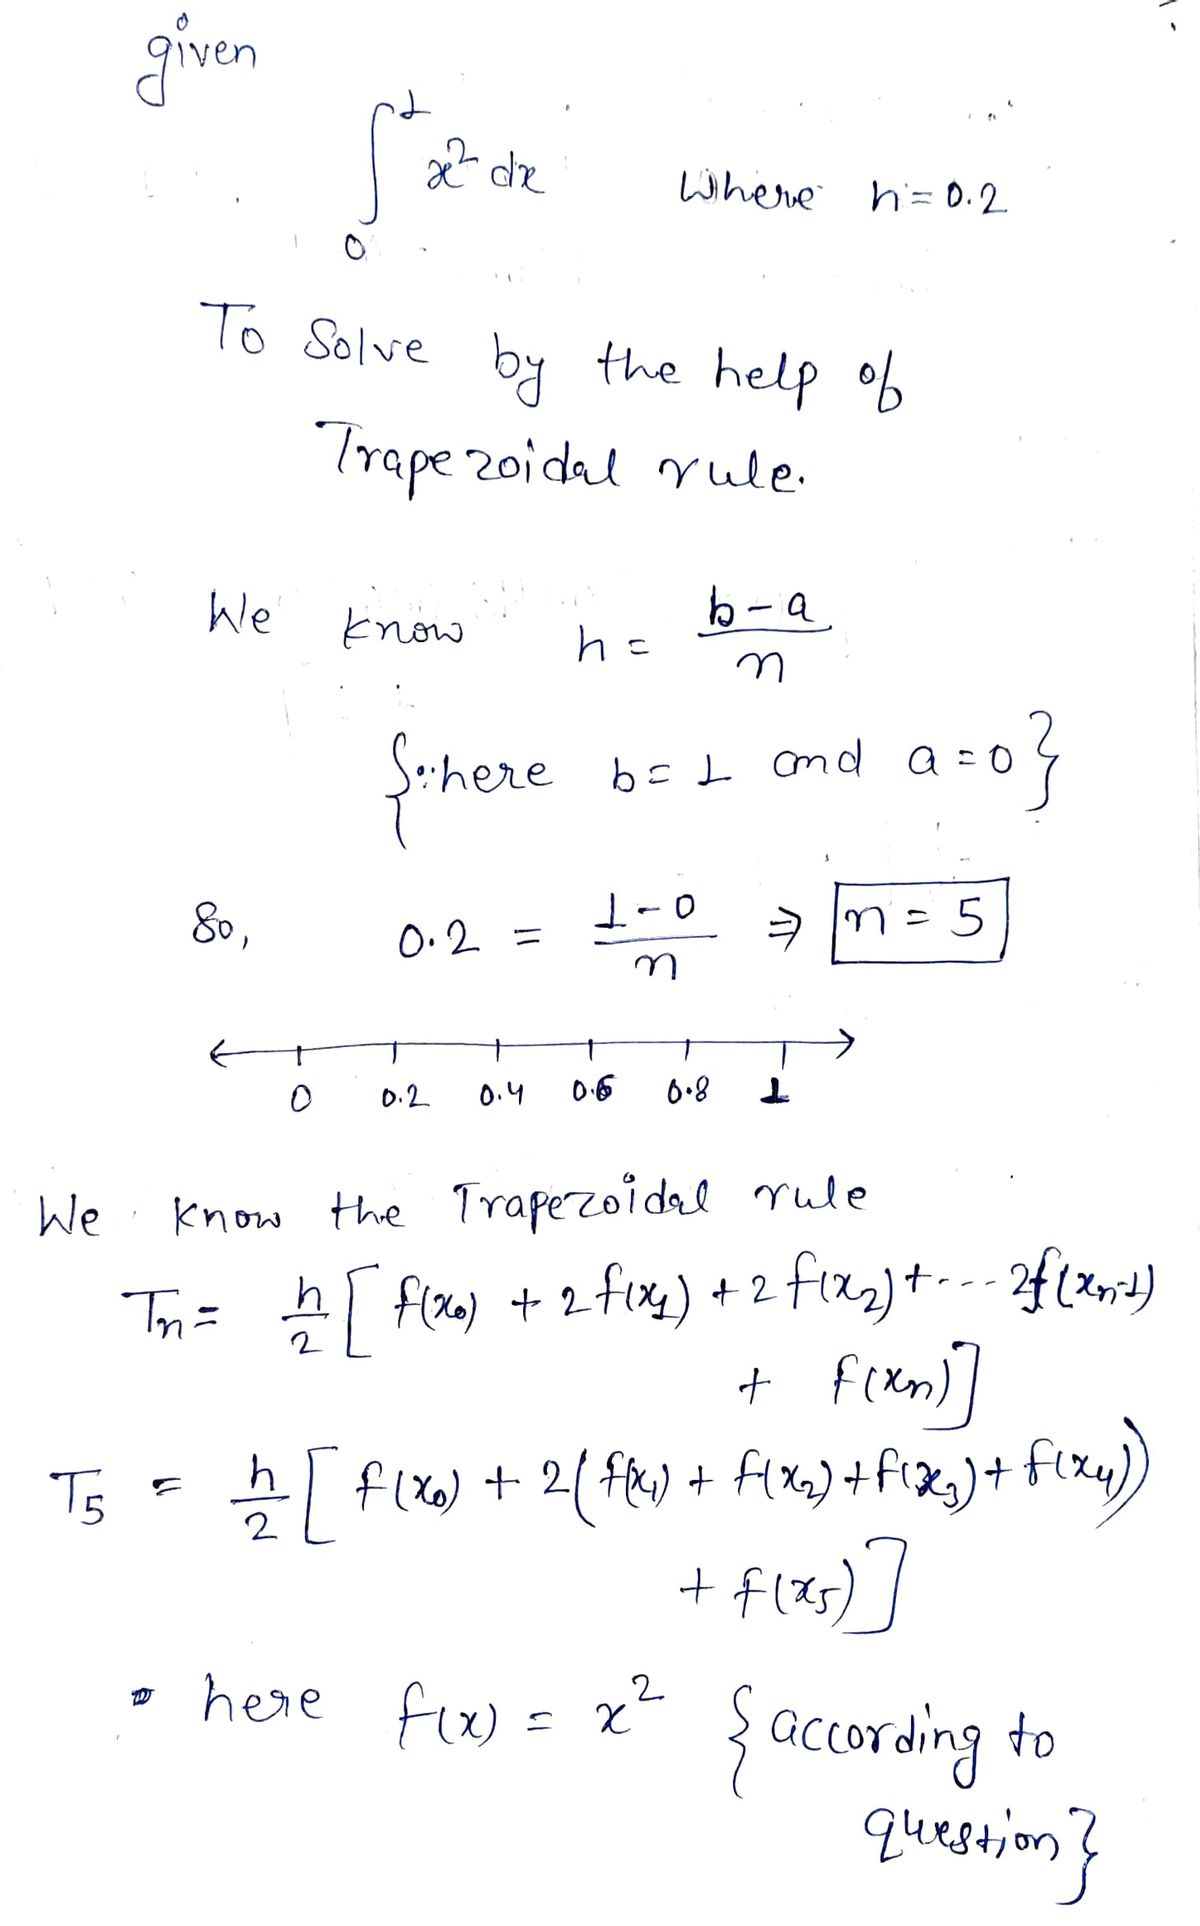 given
∫₀¹ x² dx where h = 0.2
To Solve by the help of
Trapezoidal rule.
We know h = (b-a)/n
{∵ here b = 1 and a = 0}
So, 0.2 = (1-0)/n ⇒ n = 5
0 0.2 0.4 0.6 0.8 1
We know the Trapezoidal rule
Tn = h/2 [ f(x₀) + 2 f(x₁) + 2 f(x₂) + --- 2f(xₙ₋₁)
+ f(xₙ)]
T₅ = h/2 [ f(x₀) + 2( f(x₁) + f(x₂) + f(x₃) + f(x₄))
+ f(x₅) ]
• here f(x) = x² { according to
question }